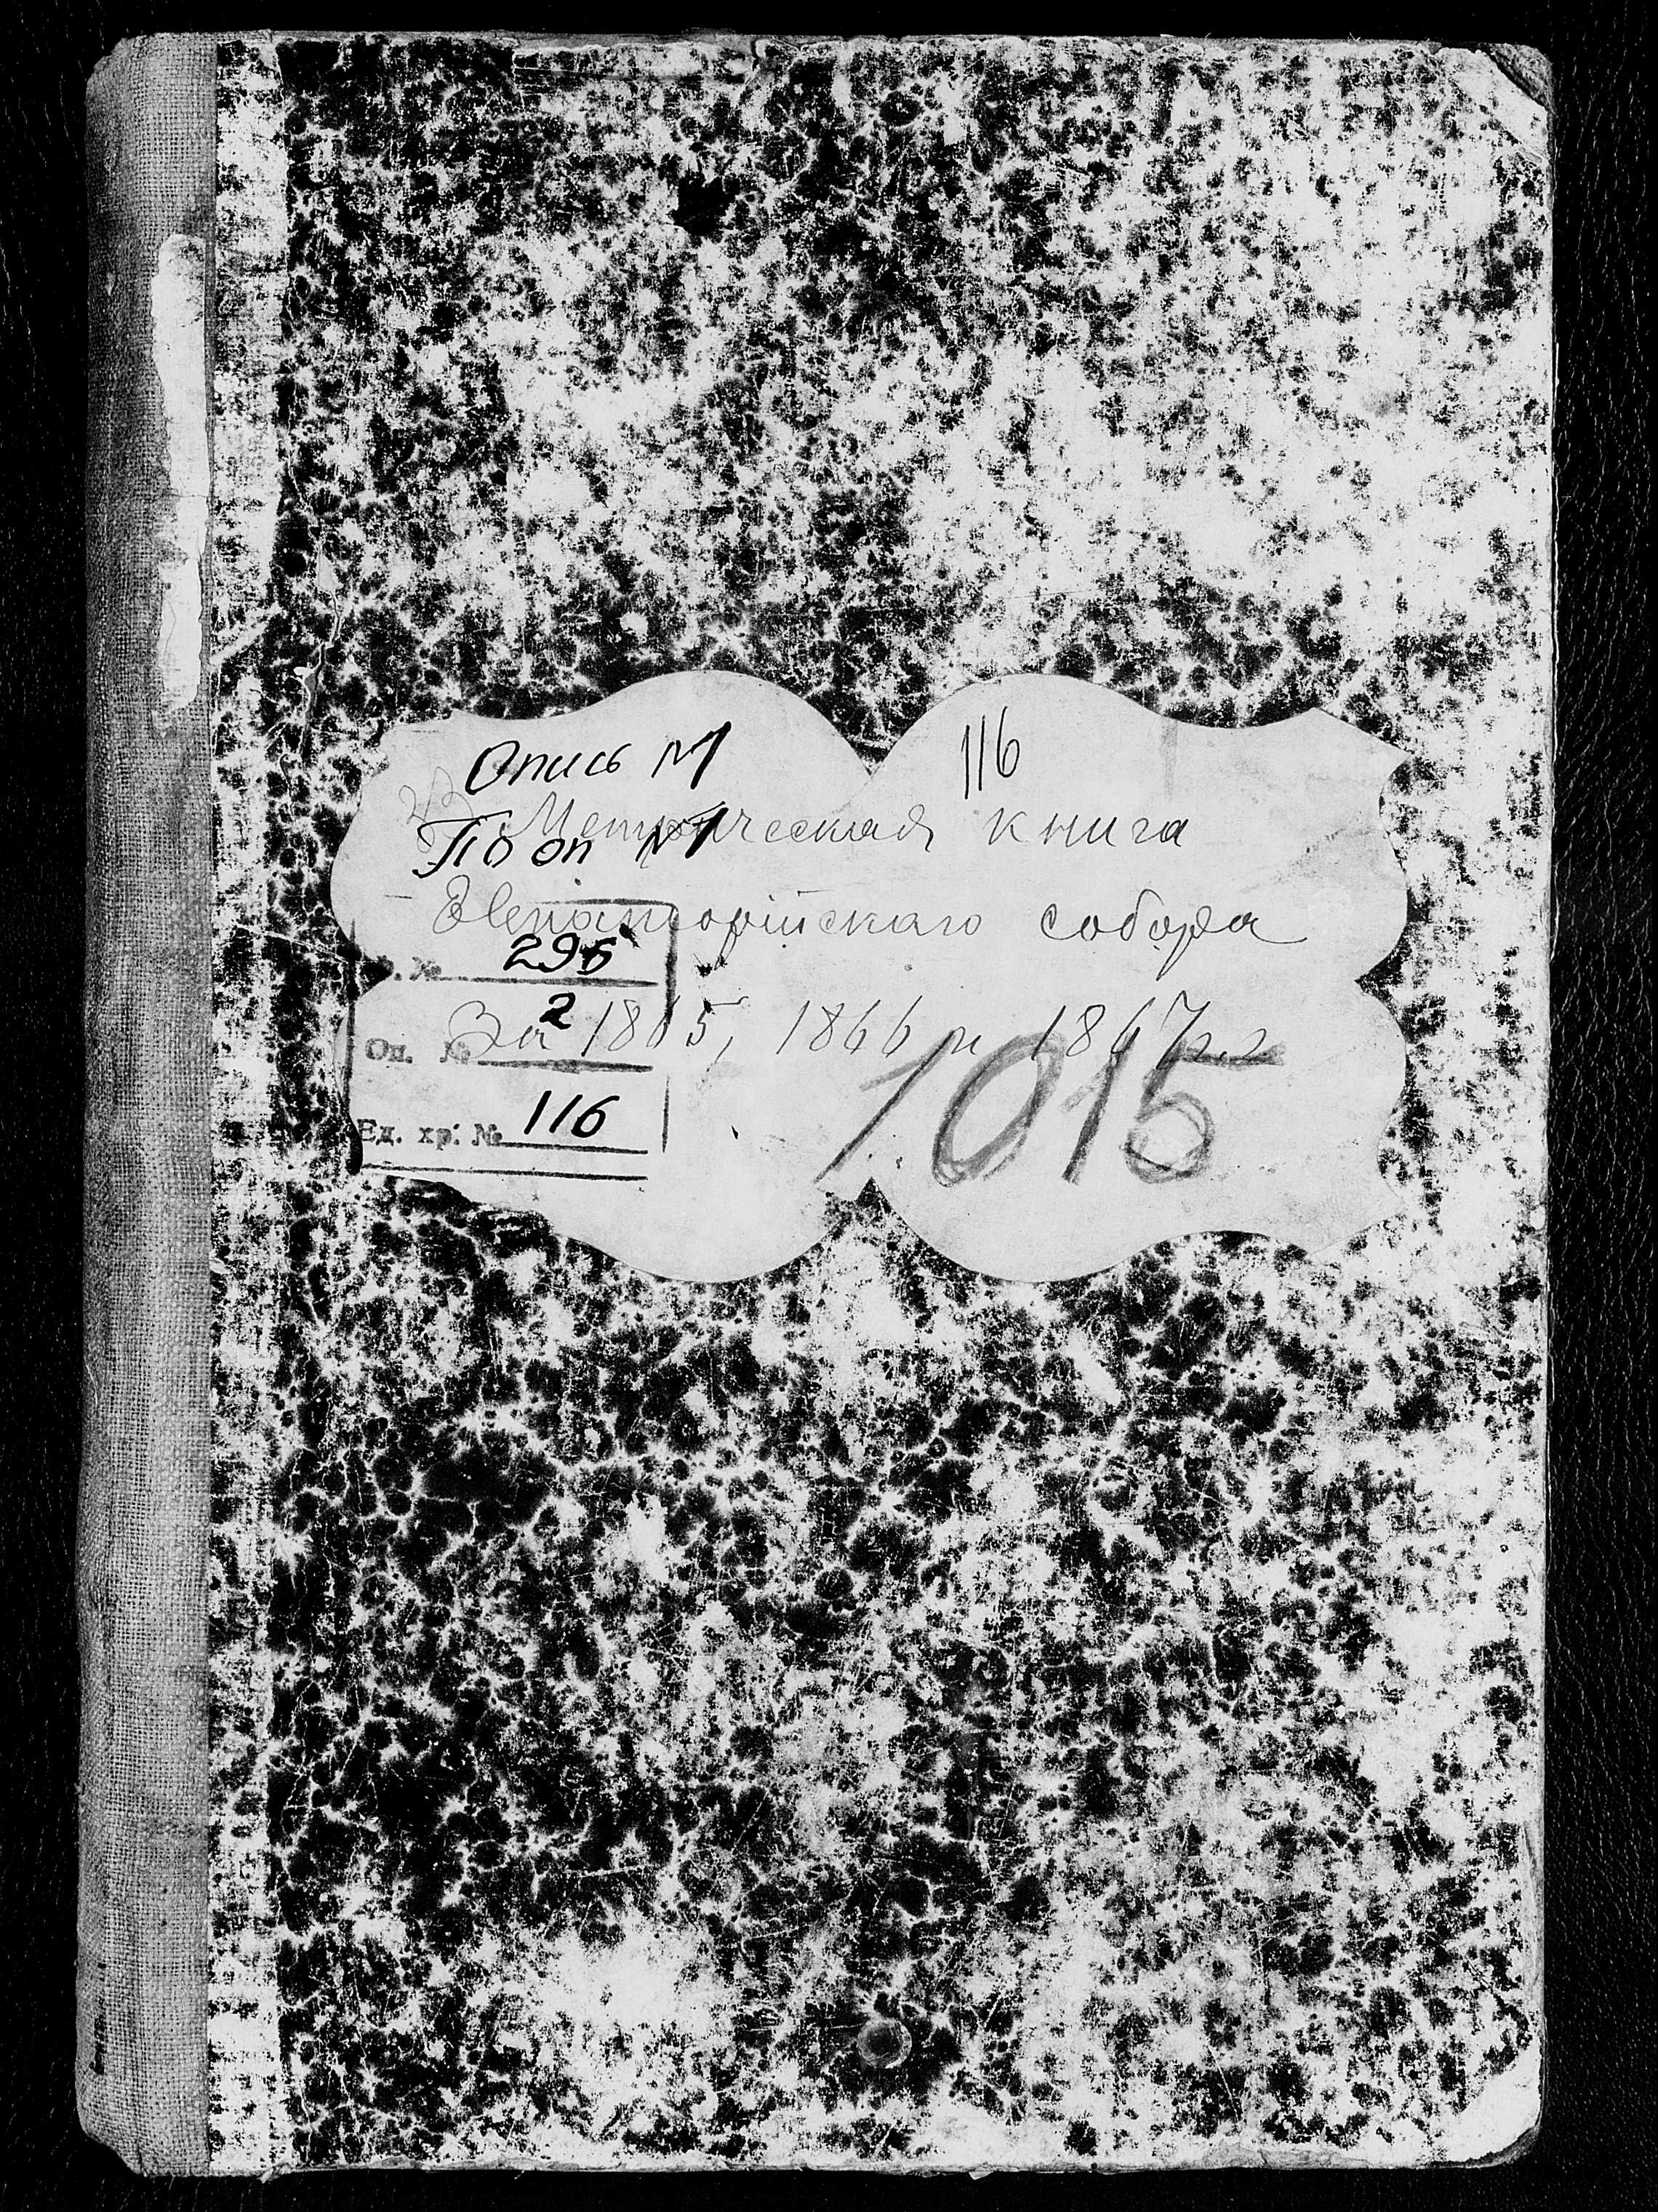 Опись №1
116
Метрическая книга
По оп №1
Евпаторійскаго собора
Ф. № 296
За 1865, 1866 и 1867 г.г.
Оп. № 2
1015
Ед. хр. № 116